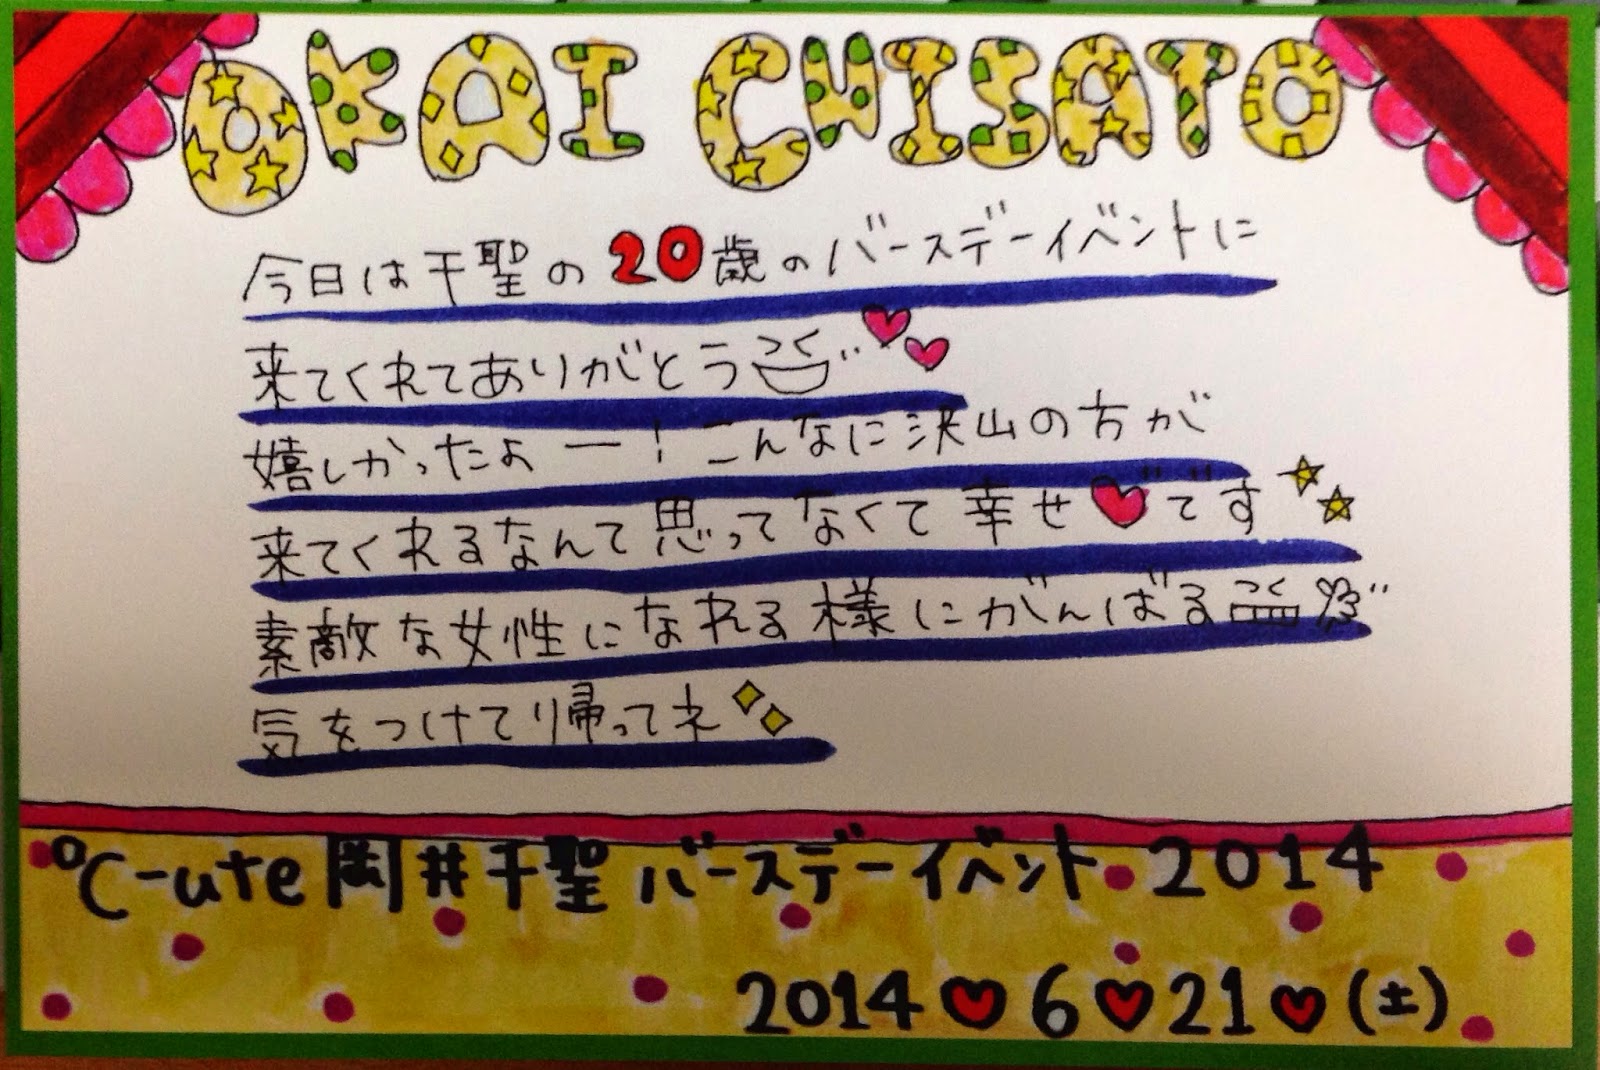 OKAI CHISATO
今日は千聖の20歳のバースデーイベントに
来てくれてありがとう
嬉しかったよー!こんなに沢山の方が
来てくれるなんて思ってなくて幸せ♥です☆☆
素敵な女性になれる様にがんばる
気をつけて帰ってネ
℃-ute岡井千聖バースデーイベント 2014
2014♥6♥21♥(土)